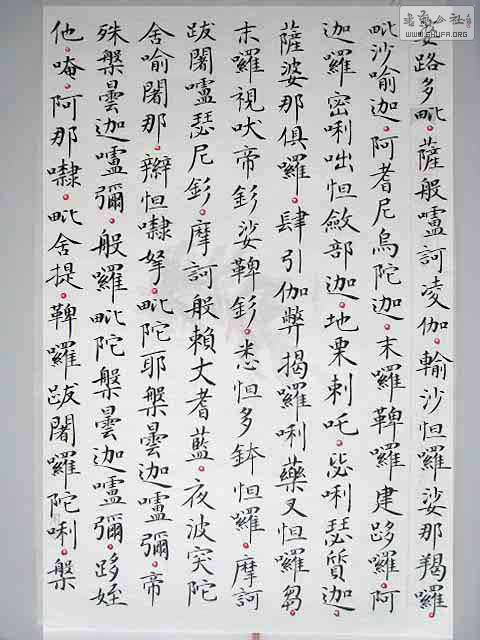 婆路多毗。薩般嚧訶凌伽。輸沙怛囉娑那羯囉。
毗沙喻迦。阿耆尼烏陀迦。末囉鞞囉建跢囉。阿
迦囉密唎咄怛斂部迦。地栗剌吒。毖唎瑟質迦。
薩婆那俱囉。肆引伽弊揭囉唎藥叉怛囉芻。
末囉視吠帝釤娑鞞釤。悉怛多鉢怛囉。摩訶
跋闍嚧瑟尼釤。摩訶般賴丈耆藍。夜波突陀
舍喻闍那。辮怛㘑拏。毗陀耶槃曇迦嚧彌。帝
殊槃曇迦嚧彌。般囉毗陀槃曇迦嚧彌。跢姪
他。唵。阿那㘑。毗舍提。鞞囉跋闍囉陀唎。槃
书法公社
WWW.SHUFA.ORG